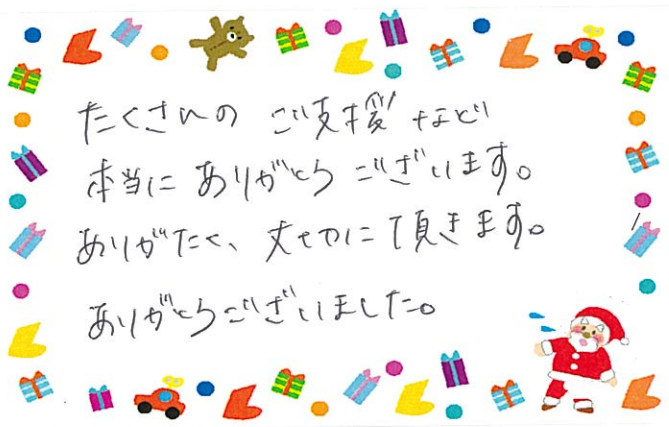 たくさんの ご支援 など
本当に ありがとう ございます。
ありがたく、大切に頂きます。
ありがとうございました。